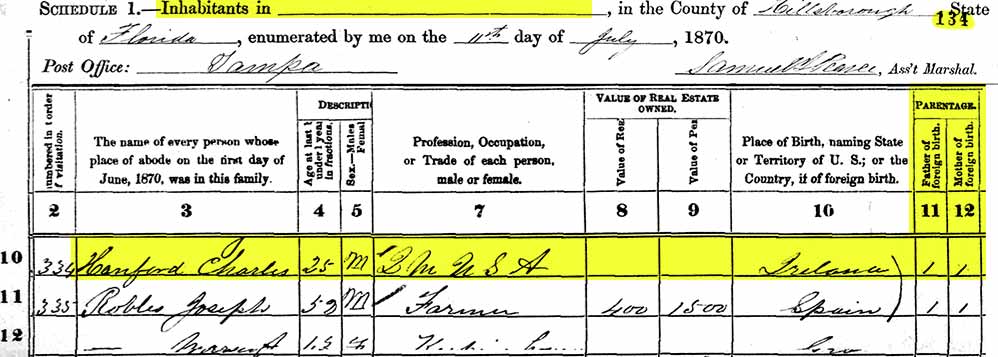 SCHEDULE 1.—Inhabitants in , in the County of Hillsborough, State
134
of Florida, enumerated by me on the 11th day of July, 1870.
Post Office: Tampa Samuel , Ass't Marshal.
DESCRIPTI VALUE OF REAL ESTATE OWNED. PARENTAGE.
numbered in t order f visitation. The name of every person whose place of abode on the first day of June, 1870, was in this family. Age at last b under 1 year in fractions. Sex.—Males Femal Profession, Occupation, or Trade of each person, male or female. Value of Rea Value of Pe Place of Birth, naming State or Territory of U. S.; or the Country, if of foreign birth. Father of foreign birth. Mother of foreign birth.
2 3 4 5 7 8 9 10 11 12
10 334 Hanford Charles 25 M Q M U S A Ireland 1 1
11 335 Robles Joseph 52 M Farmer 400 1500 Spain 1 1
12 —